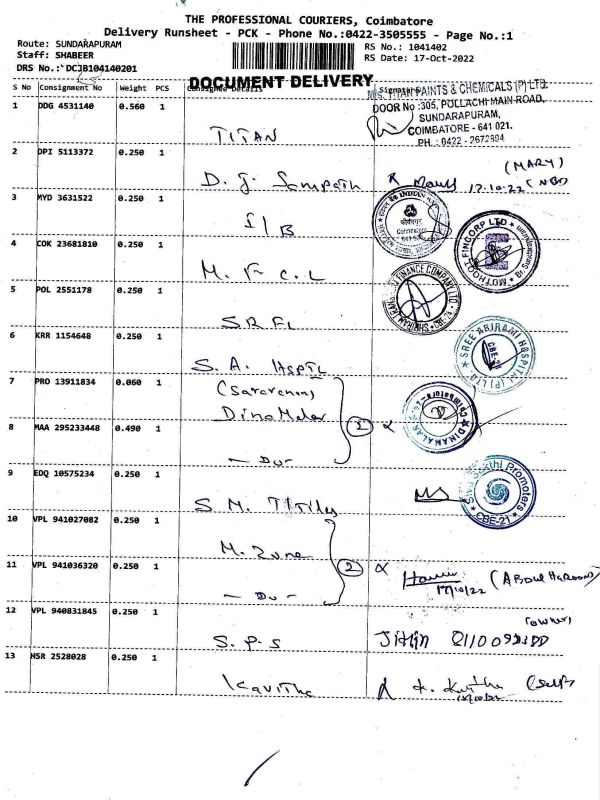 THE PROFESSIONAL COURIERS, Coimbatore
Delivery Runsheet - PCK - Phone No.:0422-3505555 - Page No.:1
Route: SUNDARAPURAM
Staff: SHABEER
DRS No.: DCJB104140201
RS No.: 1041402
RS Date: 17-Oct-2022
DOCUMENT DELIVERY
S No Consignment No Weight PCS Consignee Details Signature
M/S. TITAN PAINTS & CHEMICALS (P) LTD.
DOOR No :305, POLLACHI MAIN ROAD,
SUNDARAPURAM,
COIMBATORE - 641 021.
PH : 0422 - 2672894
1 DDG 4531140 0.560 1 TITAN
2 DPI 5113372 0.250 1 D. J. Sampath (MARY) 17.10.22
3 MYD 3631522 0.250 1 I/B
4 COK 23681810 0.250 1 M. F. C. L
MUTHOOT FINCORP LTD
5 POL 2551178 0.250 1 SRFL
SHRIRAM TRANSPORT FINANCE COMPANY LTD
6 KRR 1154648 0.250 1 S. A. Hsptl
SREE ABIRAMI HOSPITAL (P) LTD
CBE-21
7 PRO 13911834 0.060 1 (Saravanan)
DinaMalar
2
DINAMALAR
8 MAA 295233448 0.490 1 - Do -
9 EDQ 10575234 0.250 1 S. M.
Siva Sakthi Promoters
CBE-21
10 VPL 941027082 0.250 1 M. Zune
2
11 VPL 941036320 0.250 1 - Do - (ABDUL HAROON)
17/10/22
12 VPL 940831845 0.250 1 S. P. S Jithin (owner)
13 HSR 2528028 0.250 1 Kavitha K. Kavitha (Self)